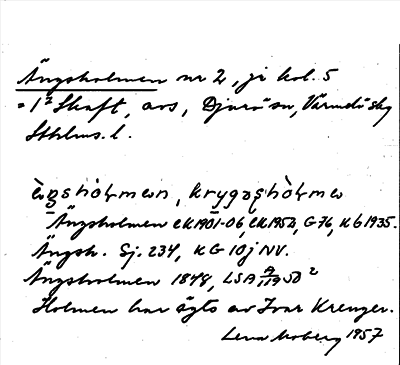 Ängsholmen nr 2, jr kol. 5
= 1² Skaft, avs, Djurö sn, Värmdö skg
Sthlms. l.
ängshòlmen, krygəshòlme
Ängsholmen EK1901-06, EK1952, G76, KG 1935.
Ängsh. Sj. 234, KG 10j NV.
Ängsholmen 1848, LSA
Holmen har ägts av Ivar Kreuger.
Lena Moberg 1957